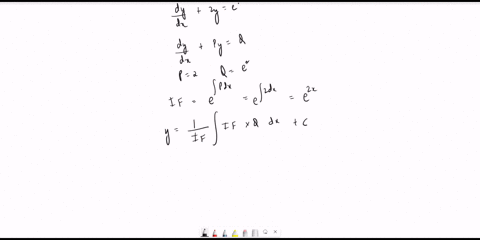 dy/dx + 2y = e
dy/dx + Py = Q
P = 2 Q = eˣ
IF = e^∫Pdx = e^∫2dx = e^2x
y = 1/IF ∫ IF × Q dx + C